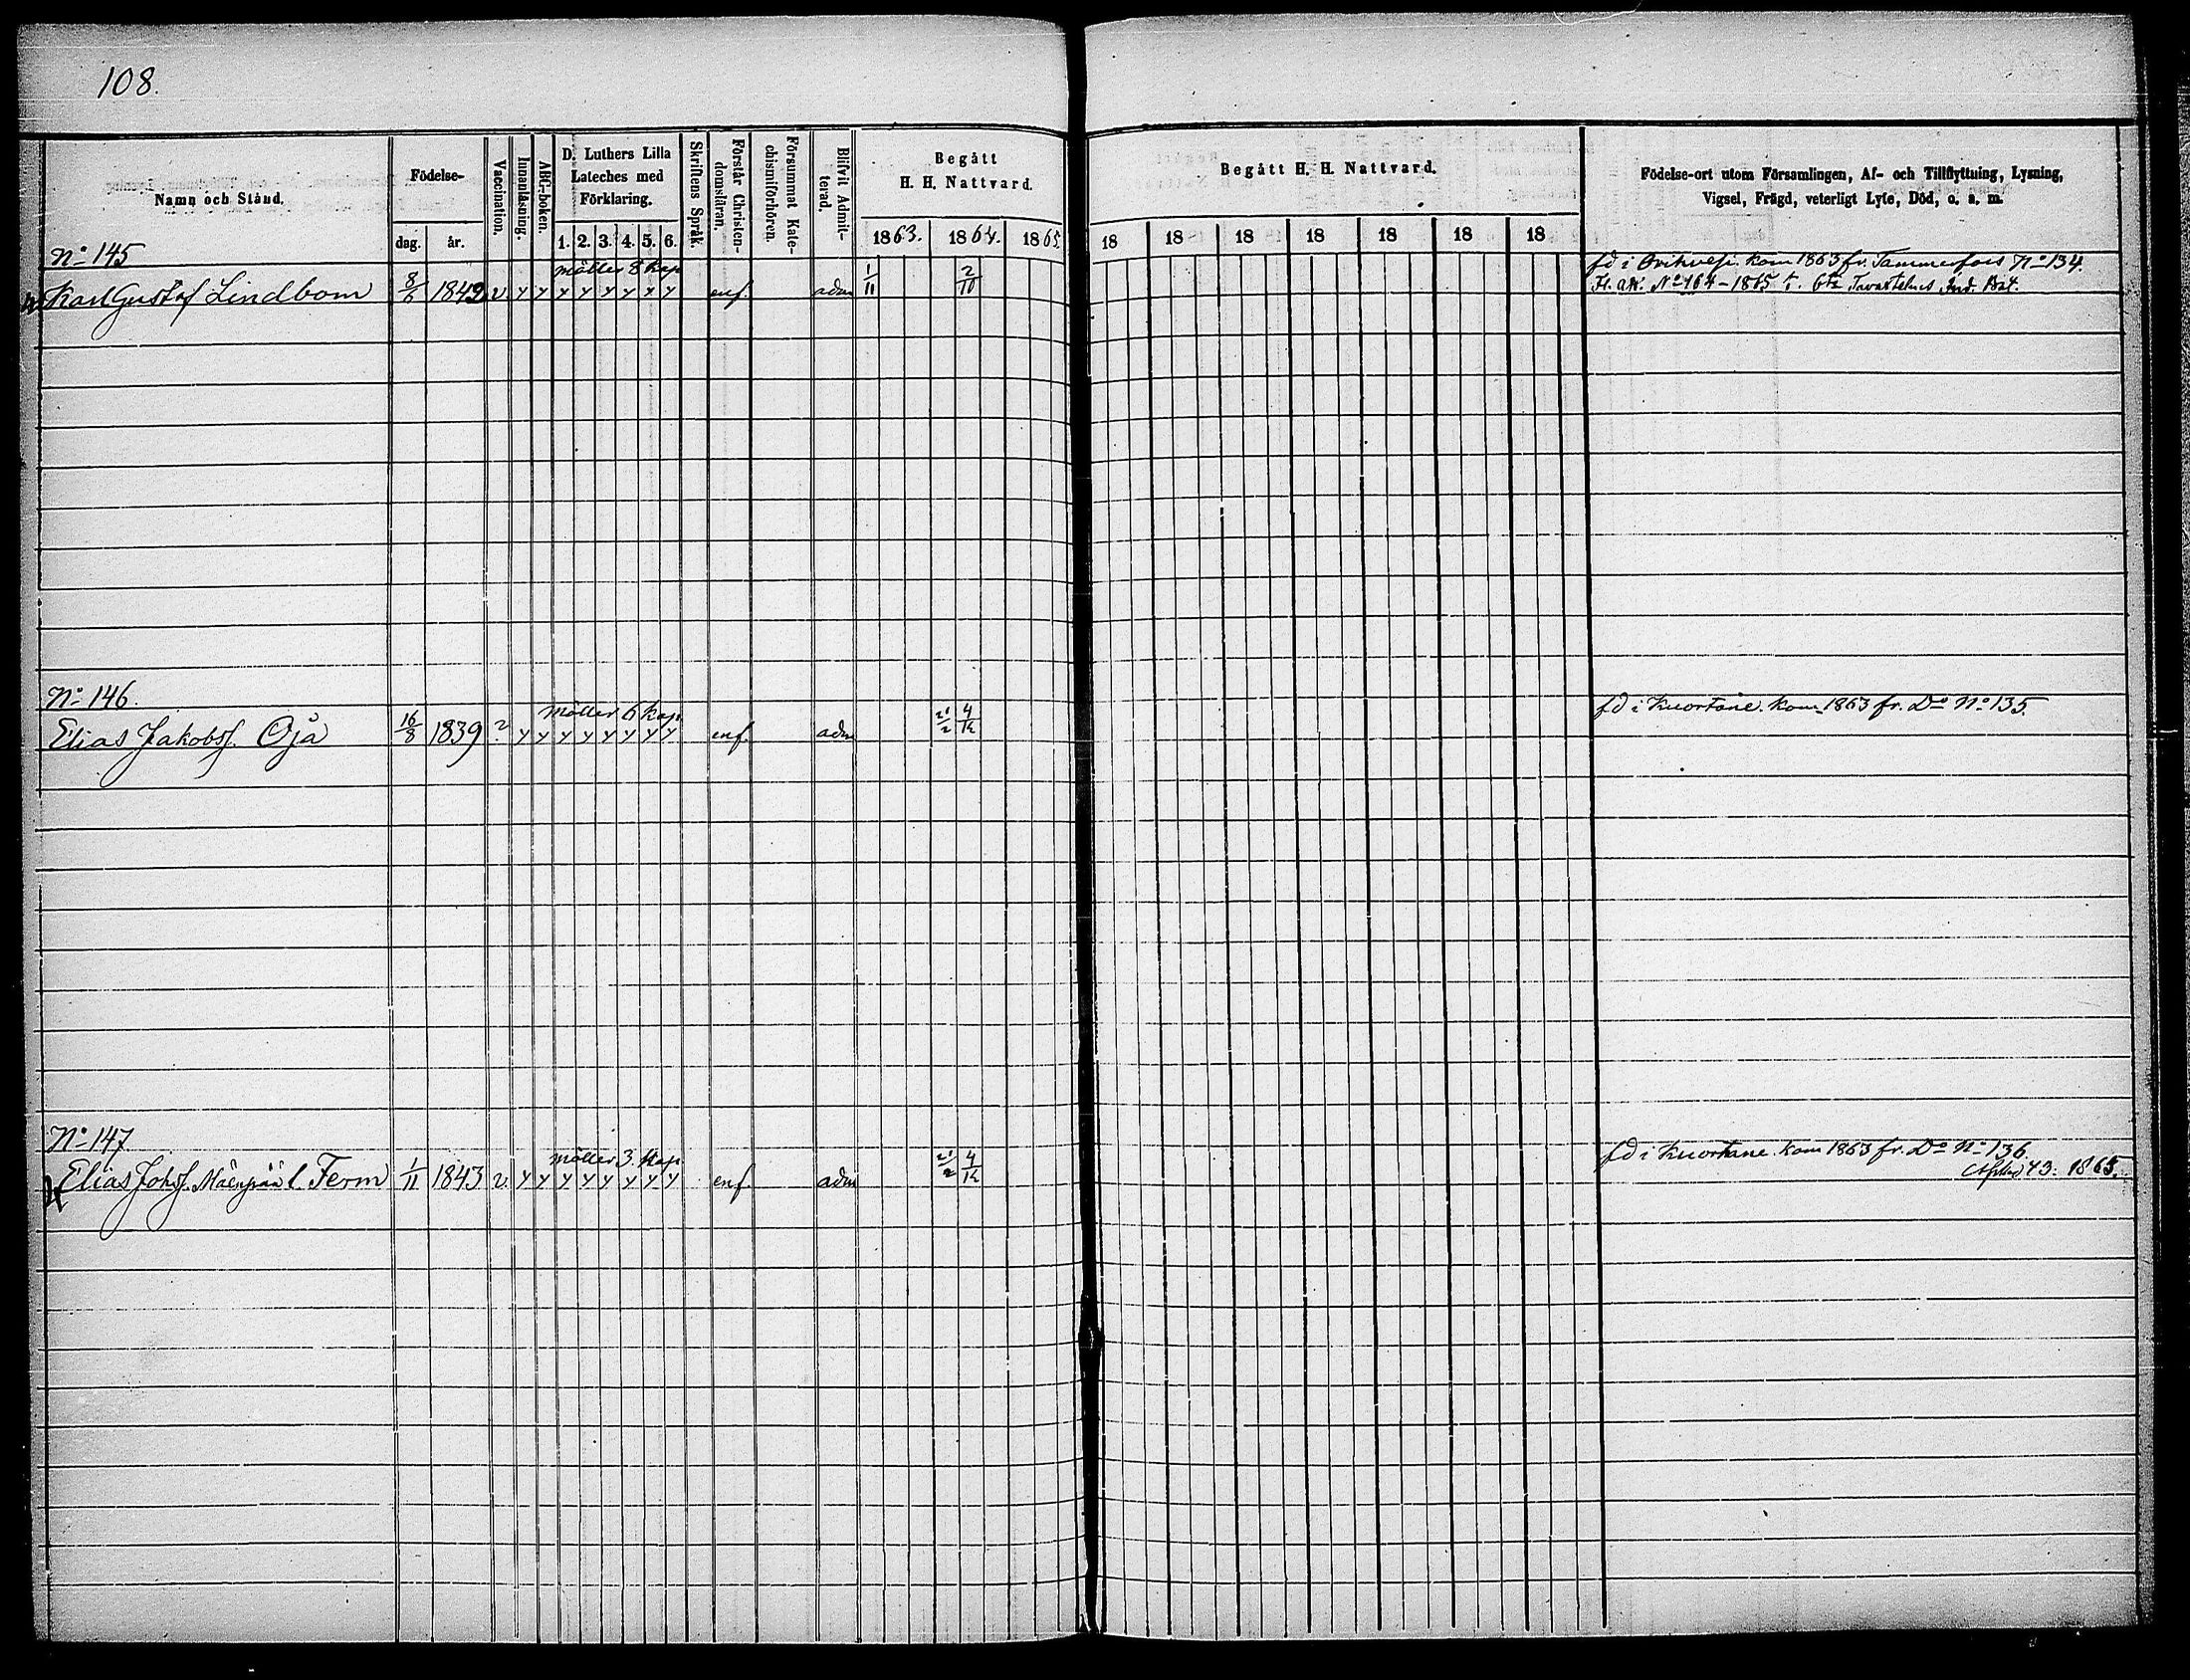 108.
Namn och Stånd.
Födelse-
dag. år.
Vaccination.
Innanläsning.
ABC-boken.
D. Luthers Lilla
Lateches med
Förklaring.
1. 2. 3. 4. 5. 6.
Skriftens Språk.
Förstår Christen-
domsläran.
Försummat Kate-
chismiförhören.
Blifvit Admit-
terad.
Begått
H. H. Nattvard.
1863. 1864. 1865.
Begått H. H. Nattvard.
18 18 18 18 18 18 18
Födelse-ort utom Församlingen, Af- och Tillflyttning, Lysning,
Vigsel, Frägd, veterligt Lyte, Död, o. s. m.
No 145
möller 8 kap
fd i Orihvesi. kom 1863 fr. Tammerfors No 134.
Karl Gustaf Lindbom 8/6 1842 v. y y y y y y y y enf. adm 1/11 2/10
No 164 - 1865 Tavastehus Ind. Bat.
No 146.
möller 6 kap.
fd i Kuortane. kom 1863 fr. Do No 135.
Elias Jakobss. Ojä 16/8 1839 v. y y y y y y y y enf. adm 21/2 4/12
No 147.
möller 3. kap
fd i Kuortane. kom 1863 fr. Do No 136.
Elias Johss. Mäenpää l. Ferm 1/11 1843 v. y y y y y y y y enf adm 21/2 4/12
43: 1865.